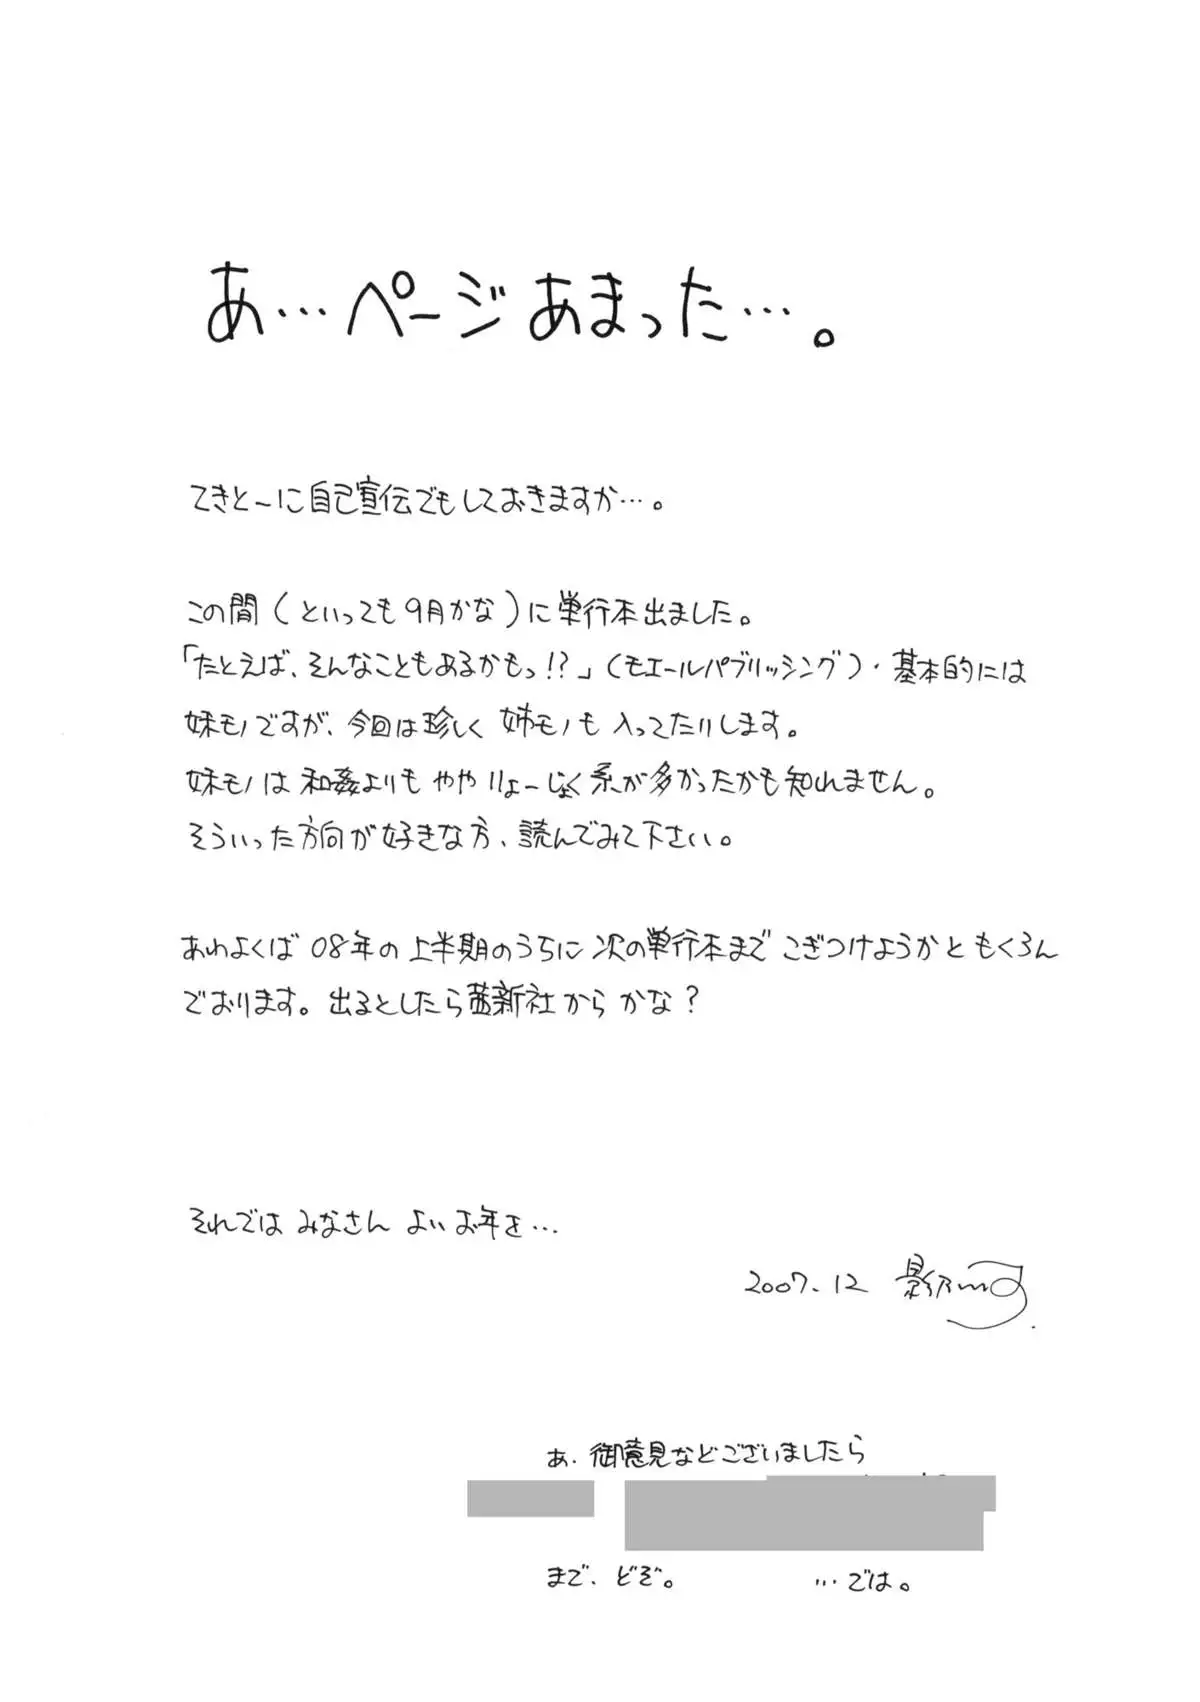 あ…ページあまった…。
てきと〜に自己宣伝でもしておきますか…。
この間(といっても9月かな)に単行本出ました。
「たとえば、そんなこともあるかもっ!?」(モエールパブリッシング)・基本的には
妹モノですが、今回は珍しく姉モノも入ってたりします。
妹モノは和姦よりもややりょーじょく系が多かったかも知れません。
そういった方向が好きな方、読んでみて下さい。
あわよくば08年の上半期のうちに次の単行本までこぎつけようかともくろん
でおります。出るとしたら茜新社からかな?
それではみなさんよいお年を…
2007.12 影乃
あ.御意見などございましたら
まで、どぞ。 …では。